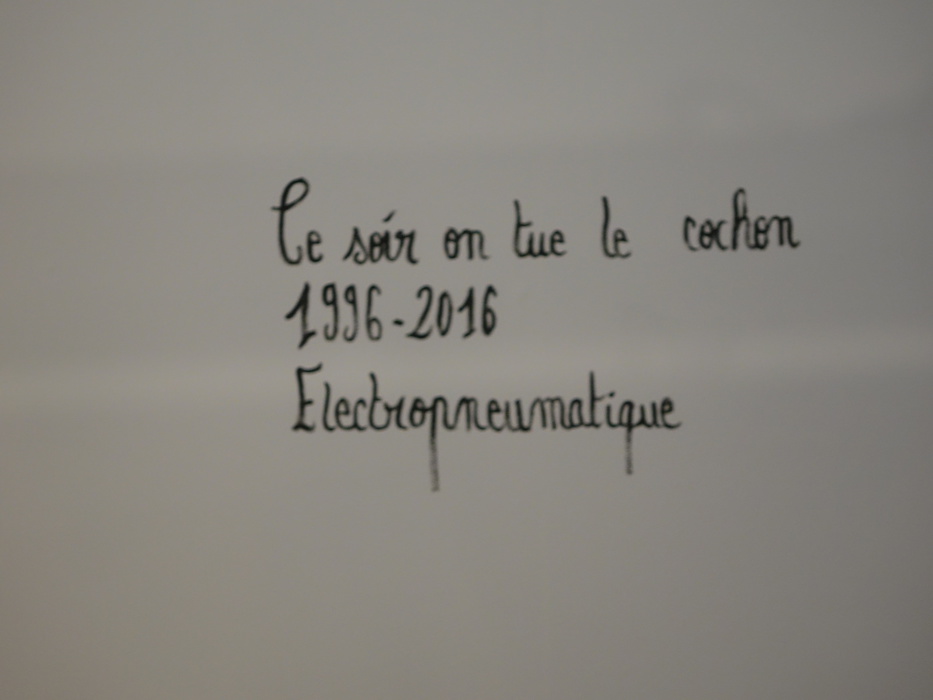 Ce soir on tue le cochon
1996-2016
Electropneumatique